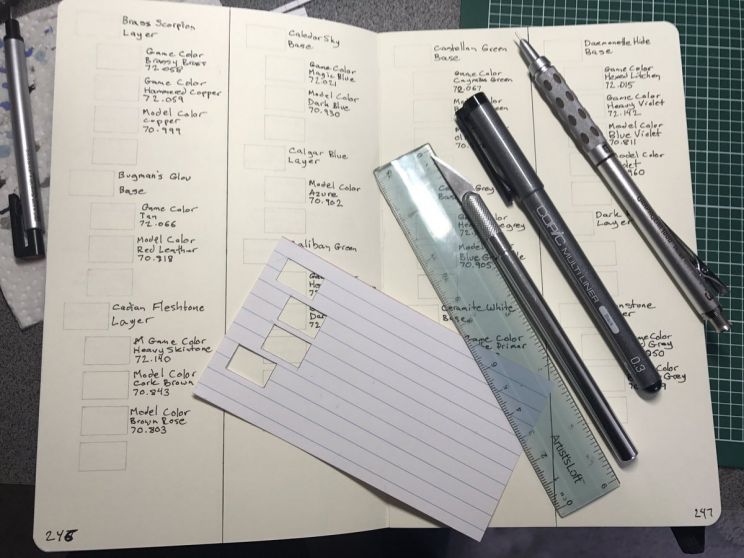 Brass Scorpion
Layer
Game Color
Brassy Brass
72.058
Game Color
Hammered Copper
72.059
Model Color
Copper
70.999
Bugman's Glow
Base
Game Color
Tan
72.066
Model Color
Red Leather
70.818
Cadian Fleshtone
Layer
Game Color
Heavy Skintone
72.140
Model Color
Cork Brown
70.843
Model Color
Brown Rose
70.803
246
Caledor Sky
Base
Game Color
Magic Blue
72.021
Model Color
Dark Blue
70.930
Calgar Blue
Layer
Model Color
Azure
70.902
Caliban Green
72
Castellan Green
Base
Game Color
Cayman Green
72.067
Grey
70.905
Ceramite White
Base
Game Color
Primer
Daemonette Hide
Base
Game Color
Hexed Lichen
72.015
Game Color
Heavy Violet
72.142
Model Color
Blue Violet
70.811
Model Color
960
Dark
Layer
Game Color
Grey
050
Color
Grey
247
COPIC MULTILINER
0.3
Artist's Loft